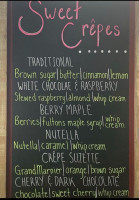 Sweet
Crêpes
TRADITIONAL
Brown sugar|butter|cinnamon|lemon
WHITE CHOCOLATE & RASPBERRY
Stewed raspberry|almond|whip cream
BERRY MAPLE
Berries|fultons maple syrup|whip cream
NUTELLA
Nutella|caramel|whip cream
CRÊPE SUZETTE
Grand Marnier|orange|brown sugar
CHERRY & DARK CHOCOLATE
chocolate|sweet cherry|whip cream